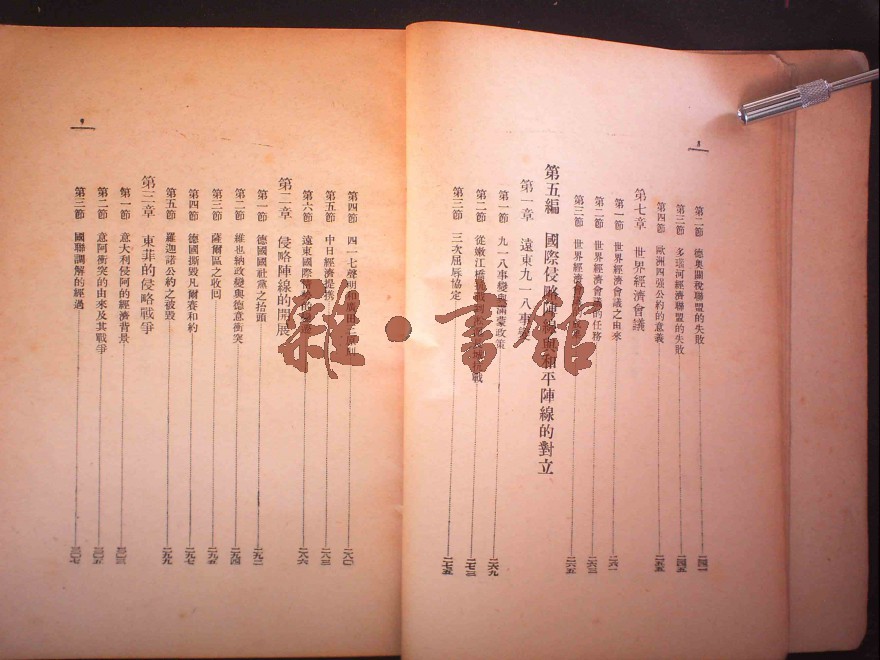 8
第二節 德奧關稅聯盟的失敗 二四一
第三節 多瑙河經濟聯盟的失敗 二四五
第四節 歐洲四强公約的意義 二五五
第七章 世界經濟會議
第一節 世界經濟會議之由來 二六一
第二節 世界經濟會議的任務 二六三
第三節 世界經濟 二六五
第五編 國際侵略陣線與和平陣線的對立
第一章 遠東九一八事
第一節 九一八事變與滿蒙政策 二六九
第二節 從嫩江橋 戰 二七三
第三節 三次屈辱協定 二七五
9
第四節 四一七聲明 二八〇
第五節 中日經濟提携 二八三
第六節 遠東國際 二八六
第二章 侵略陣線的開展
第一節 德國國社黨之抬頭 二九二
第二節 維也納政變與德意衝突 二九四
第三節 薩爾區之收回 二九五
第四節 德國撕毀凡爾賽和約 二九七
第五節 羅迦諾公約之被毀 二九九
第三章 東非的侵略戰爭
第一節 意大利侵阿的經濟背景 三〇三
第二節 意阿衝突的由來及其戰爭 三〇五
第三節 國聯調解的經過 三〇七
雜·書館